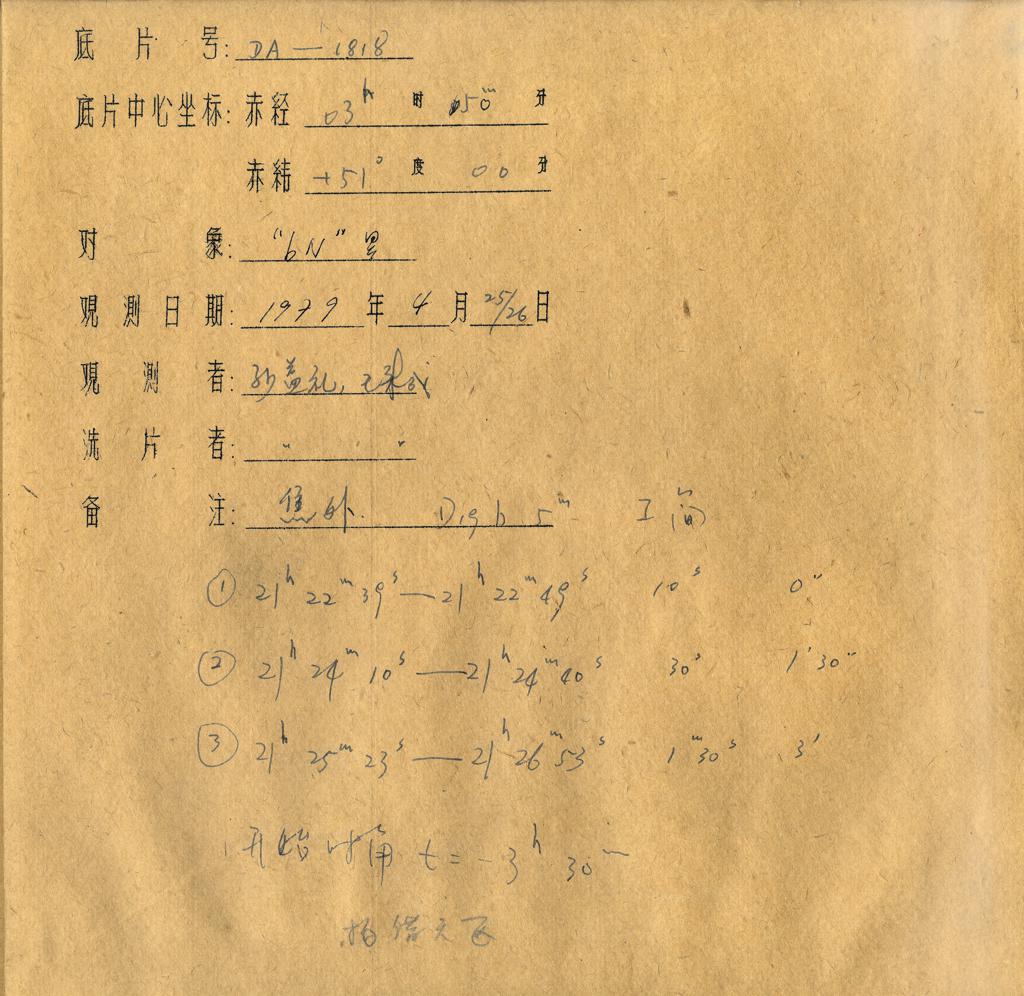 底片号: DA — 1818
底片中心坐标: 赤经 03ʰ 时 50ᵐ 分
赤纬 +51° 度 00 分
对象: "bN" 星
观测日期: 1979 年 4 月 25/26 日
观测者: 孙益礼,
洗片者: 〃 〃
备注: 焦外. 5ᵐ
① 21ʰ 22ᵐ 39ˢ — 21ʰ 22ᵐ 49ˢ 10ˢ 0"
② 21ʰ 24ᵐ 10ˢ — 21ʰ 24ᵐ 40ˢ 30ˢ 1'30"
③ 21ʰ 25ᵐ 23ˢ — 21ʰ 26ᵐ 53ˢ 1ᵐ30ˢ 3'
开始时角 t = -3ʰ 30ᵐ
拍错天区